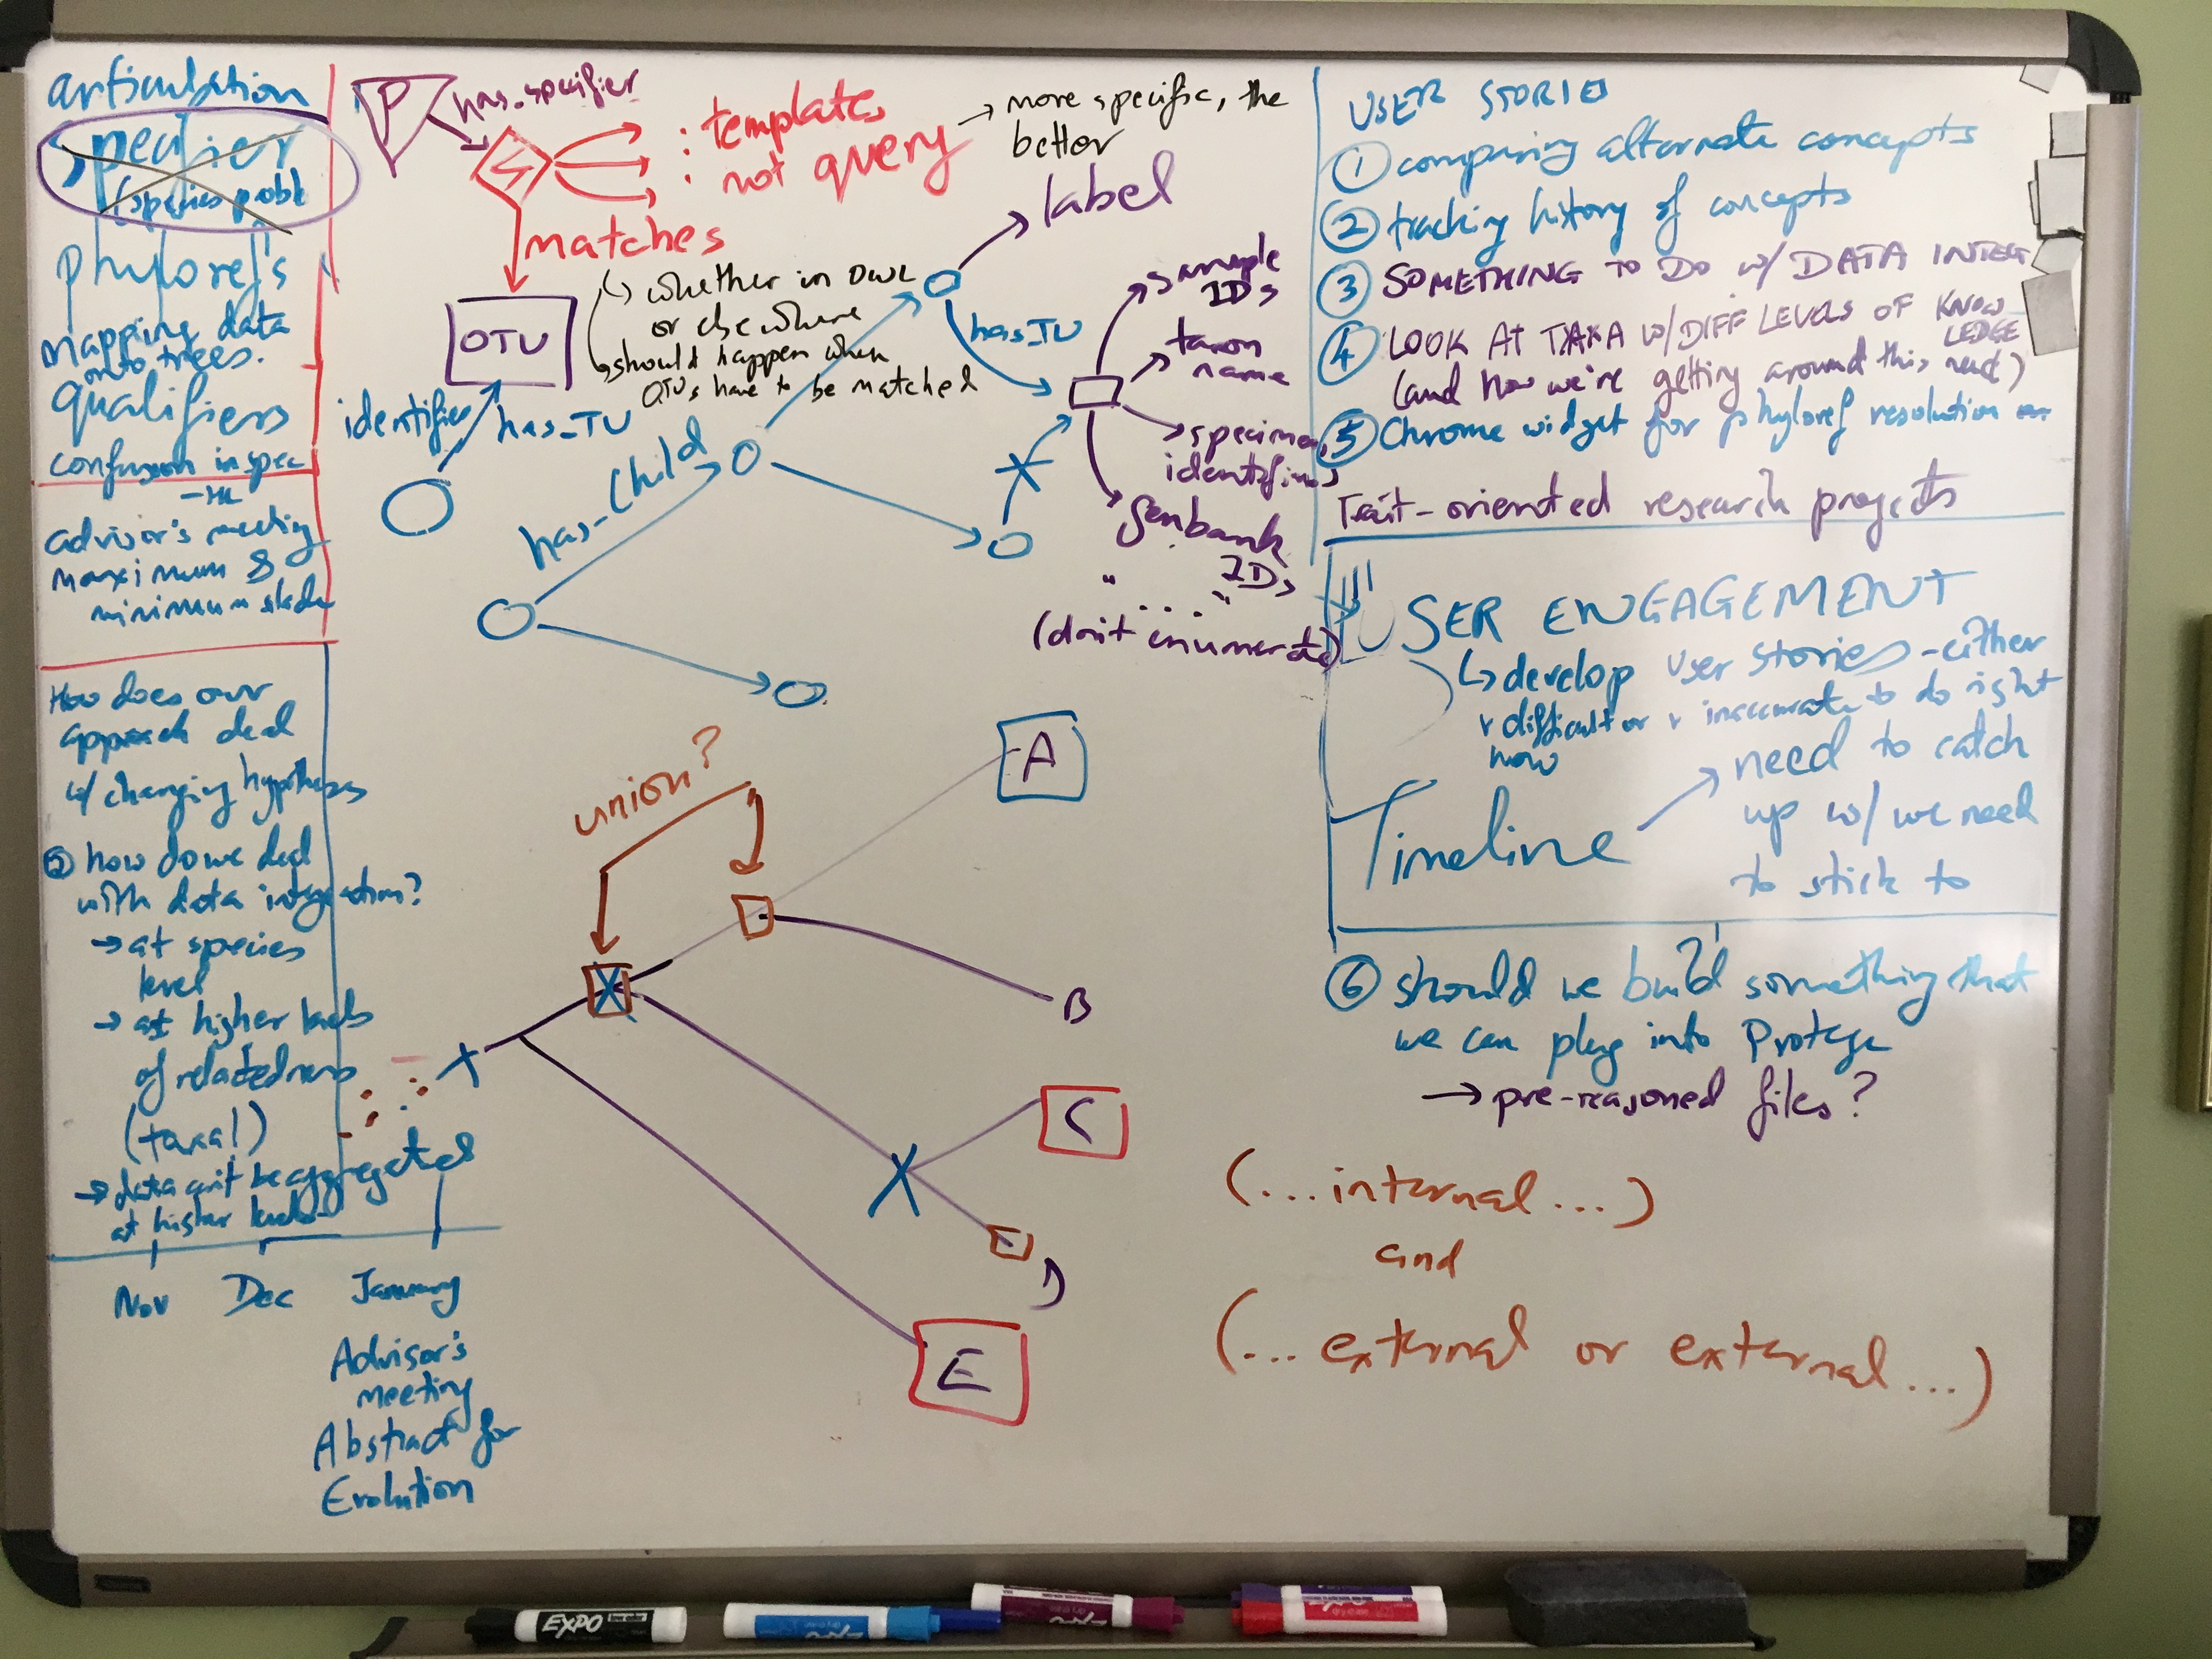 articulation
specifier
(species probl
phyloref's
mapping data
onto trees.
qualifiers
confusion in spec
advisor's meeting
maximum &
minimum
How does our
approach deal
w/ changing hypotheses
② how do we deal
with data integration?
→ at species
level
→ at higher levels
of relatedness
(taxa!)
→ data can't be aggregated
at higher levels
Nov Dec January
Advisor's
meeting
Abstract for
Evolution
P
has_specifier
: templates
: not query
→ more specific, the
better
matches
OTU
↳ whether in OWL
or elsewhere
↳ should happen when
OTUs have to be matched
identifies
has_TU
has_Child
label
has_TU
sample
IDs
taxon
name
specimen
identifiers
genbank
IDs
" ... "
(don't enumerate)
union?
A
B
C
D
E
USER STORIES
① comparing alternate concepts
② tracking history of concepts
③ SOMETHING TO DO w/ DATA INTEG
④ LOOK AT TAXA w/ DIFF LEVELS OF KNOW
LEDGE
(and how we're getting around this need)
⑤ Chrome widget for phyloref resolution
Trait-oriented research projects
USER ENGAGEMENT
↳ develop user stories - either
v difficult or v inaccurate to do right
now
Timeline
→ need to catch
up w/ we need
to stick to
⑥ should we build something that
we can plug into Protege
→ pre-reasoned files?
(...internal...)
and
(...external or external...)
EXPO